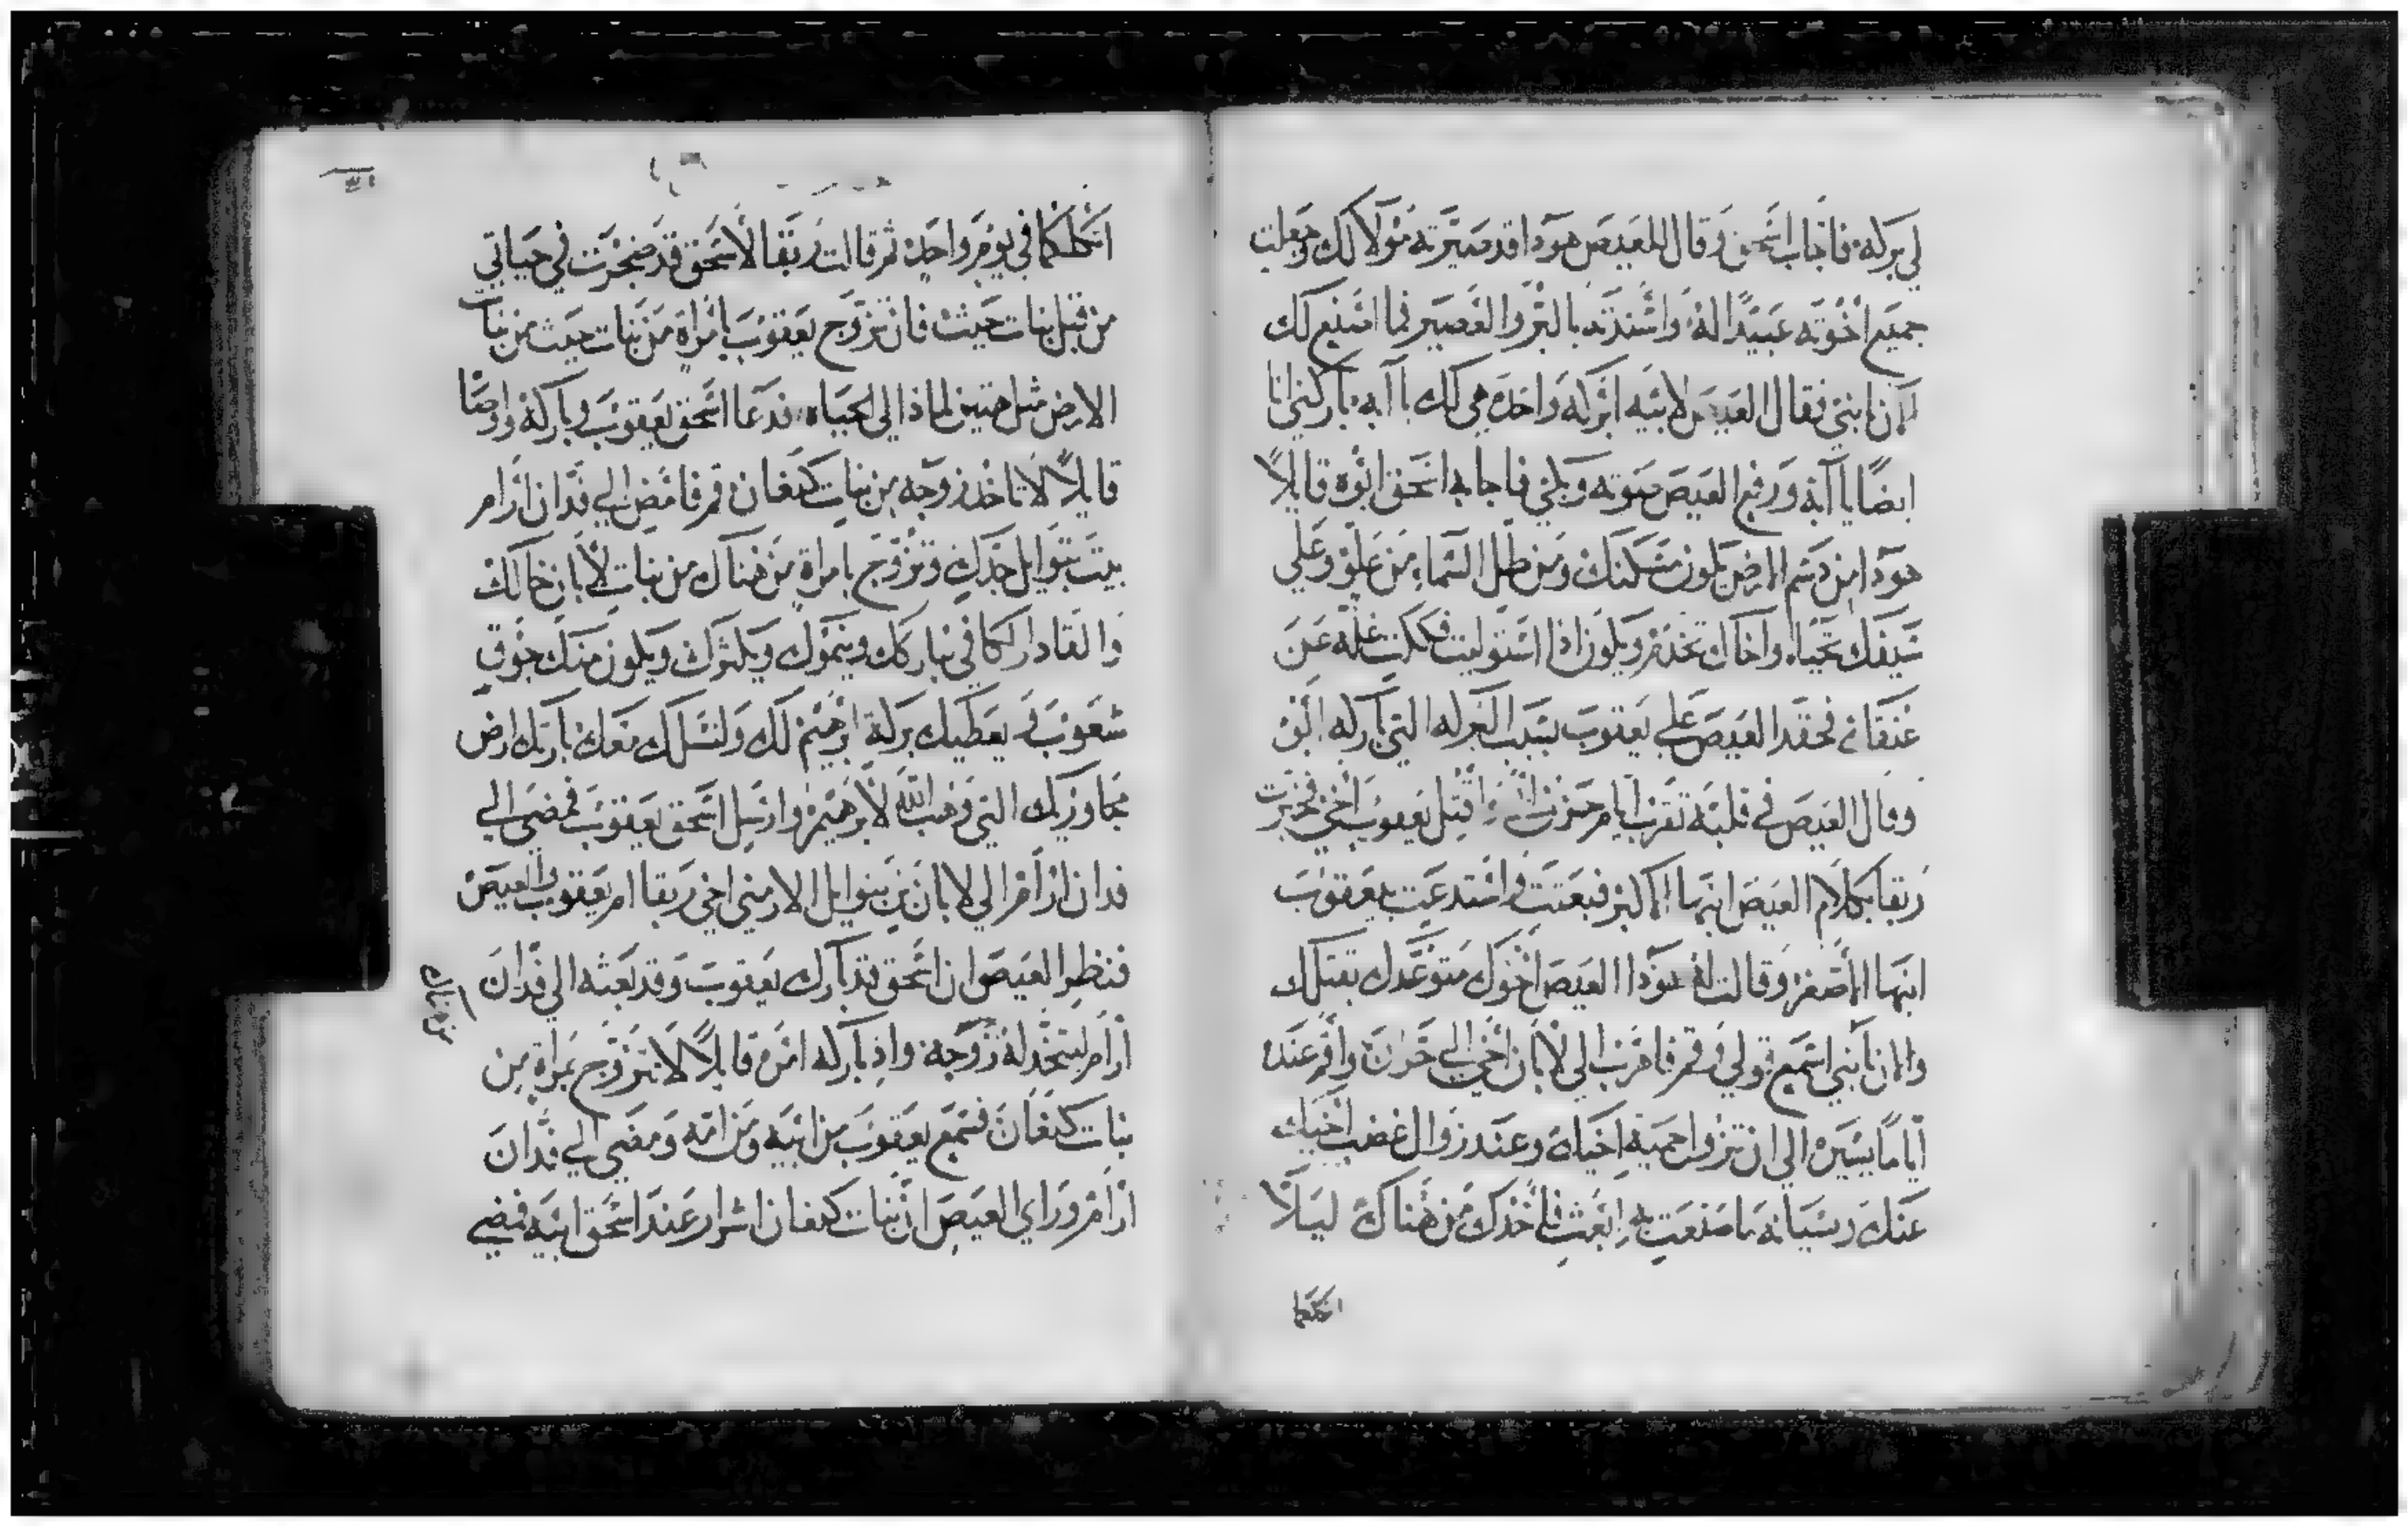 لي بركه فاجاب اسحق وقال للعيص هودا قد صيرته مولا لك وجعلت
جميع اخوته عبيدا له واسندته بالبر والعصير فما اصنع لك
الان يا بني فقال العيص لابيه ابركه واحده هي لك يا ابه باركني انا
ايضا يا ابه ورفع العيص صوته وبكي فاجابه اسحق ابوه قايلا
هودا من دسم الارض يكون مسكنك ومن طل السماء من علو وعلي
سيفك تحياه واخاك تخدم ويكون اذا استوليت فككت غله عن
عنقك فحقد العيص علي يعقوب بسبب البركه التي باركه ابوه
وقال العيص في قلبه تقرب ايام حزن اقتل يعقوب اخي فخبرت
ربقا بكلام العيص ابنها الاكبر فبعتت واستدعيت بيعقوب
ابنها الاصغر وقالت له هودا العيص اخوك متوعدك بقتلك
والان يا بني اسمع قولي وقم فاهرب الي لابان اخي الي حران واقم عنده
اياما يسيره الي ان تزول حمية اخياك وعند زوال غضب اخياك
عنك ونسيانه ما صنعت به ابعث فاخدك من هناك ليلا
اثكلكما
اثكلكما في يوم واحد ثم قالت ربقا لاسحق قد ضجرت في حياتي
من قبل بنات حيث فان تزوج يعقوب بامراة من بنات حيث من بنات
الارض مثل هتين لماذا الي الحياه فدعا اسحق يعقوب وباركه وواصا
قايلا لا تاخد زوجه من بنات كنعان قم فامض الي فدان ارام
بيت بتوايل جدك وتزوج بامراة من هناك من بنات لابان خالك
والقادر الكافي يباركك وينموك ويكثرك ويكون منك جوق
شعوب ويعطيك بركة ابرهيم لك ولنسلك معك بارثك ارض
مجاورتك التي وهب الله لابرهيم وارسل اسحق يعقوب فمضي الي
فدان ارام الي لابان بن بتوايل الارمني اخي ربقا ام يعقوب والعيص
فنظر العيص ان اسحق قد بارك يعقوب وقد بعثه الي فدان
ارام ليتخد له زوجه واذ باركه امره قايلا لا تتزوج بمراة من
بنات كنعان فسمع يعقوب من ابيه ومن امه ومضي الي فدان
ارام وراي العيص ان بنات كنعان اشرار عند اسحق ابيه فمضي
من هناك